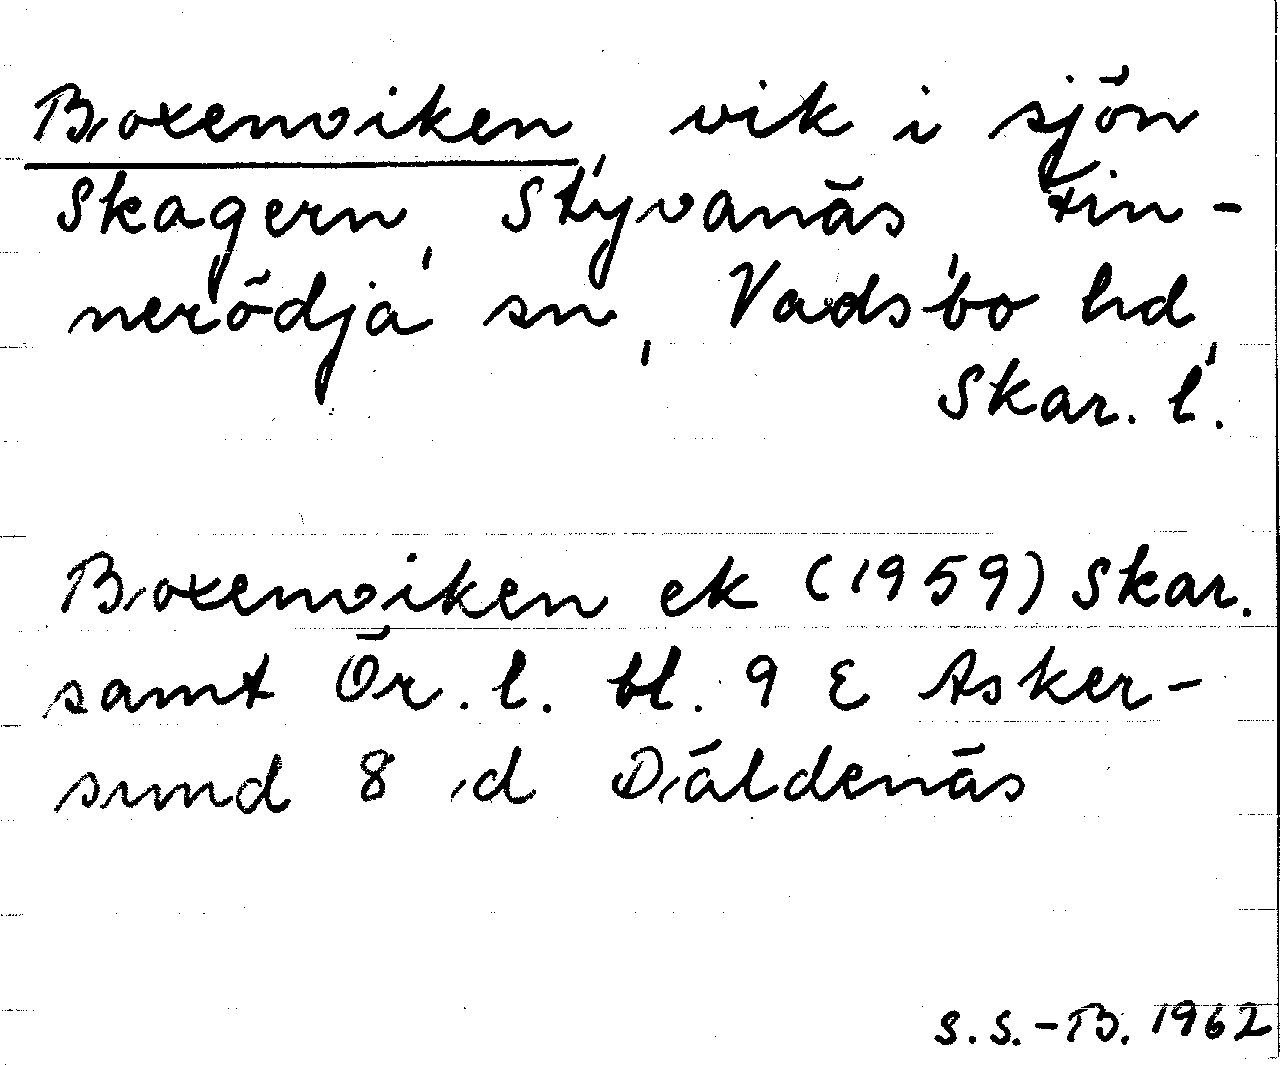 Boxenviken, vik i sjön
Skagern, Styvanäs, Fin-
nerödja sn, Vadsbo hd,
Skar. l.
Boxenviken ek (1959) Skar.
samt Ör. l. bl. 9 E Asker-
sund 8 d Däldenäs
S.S.-B. 1962